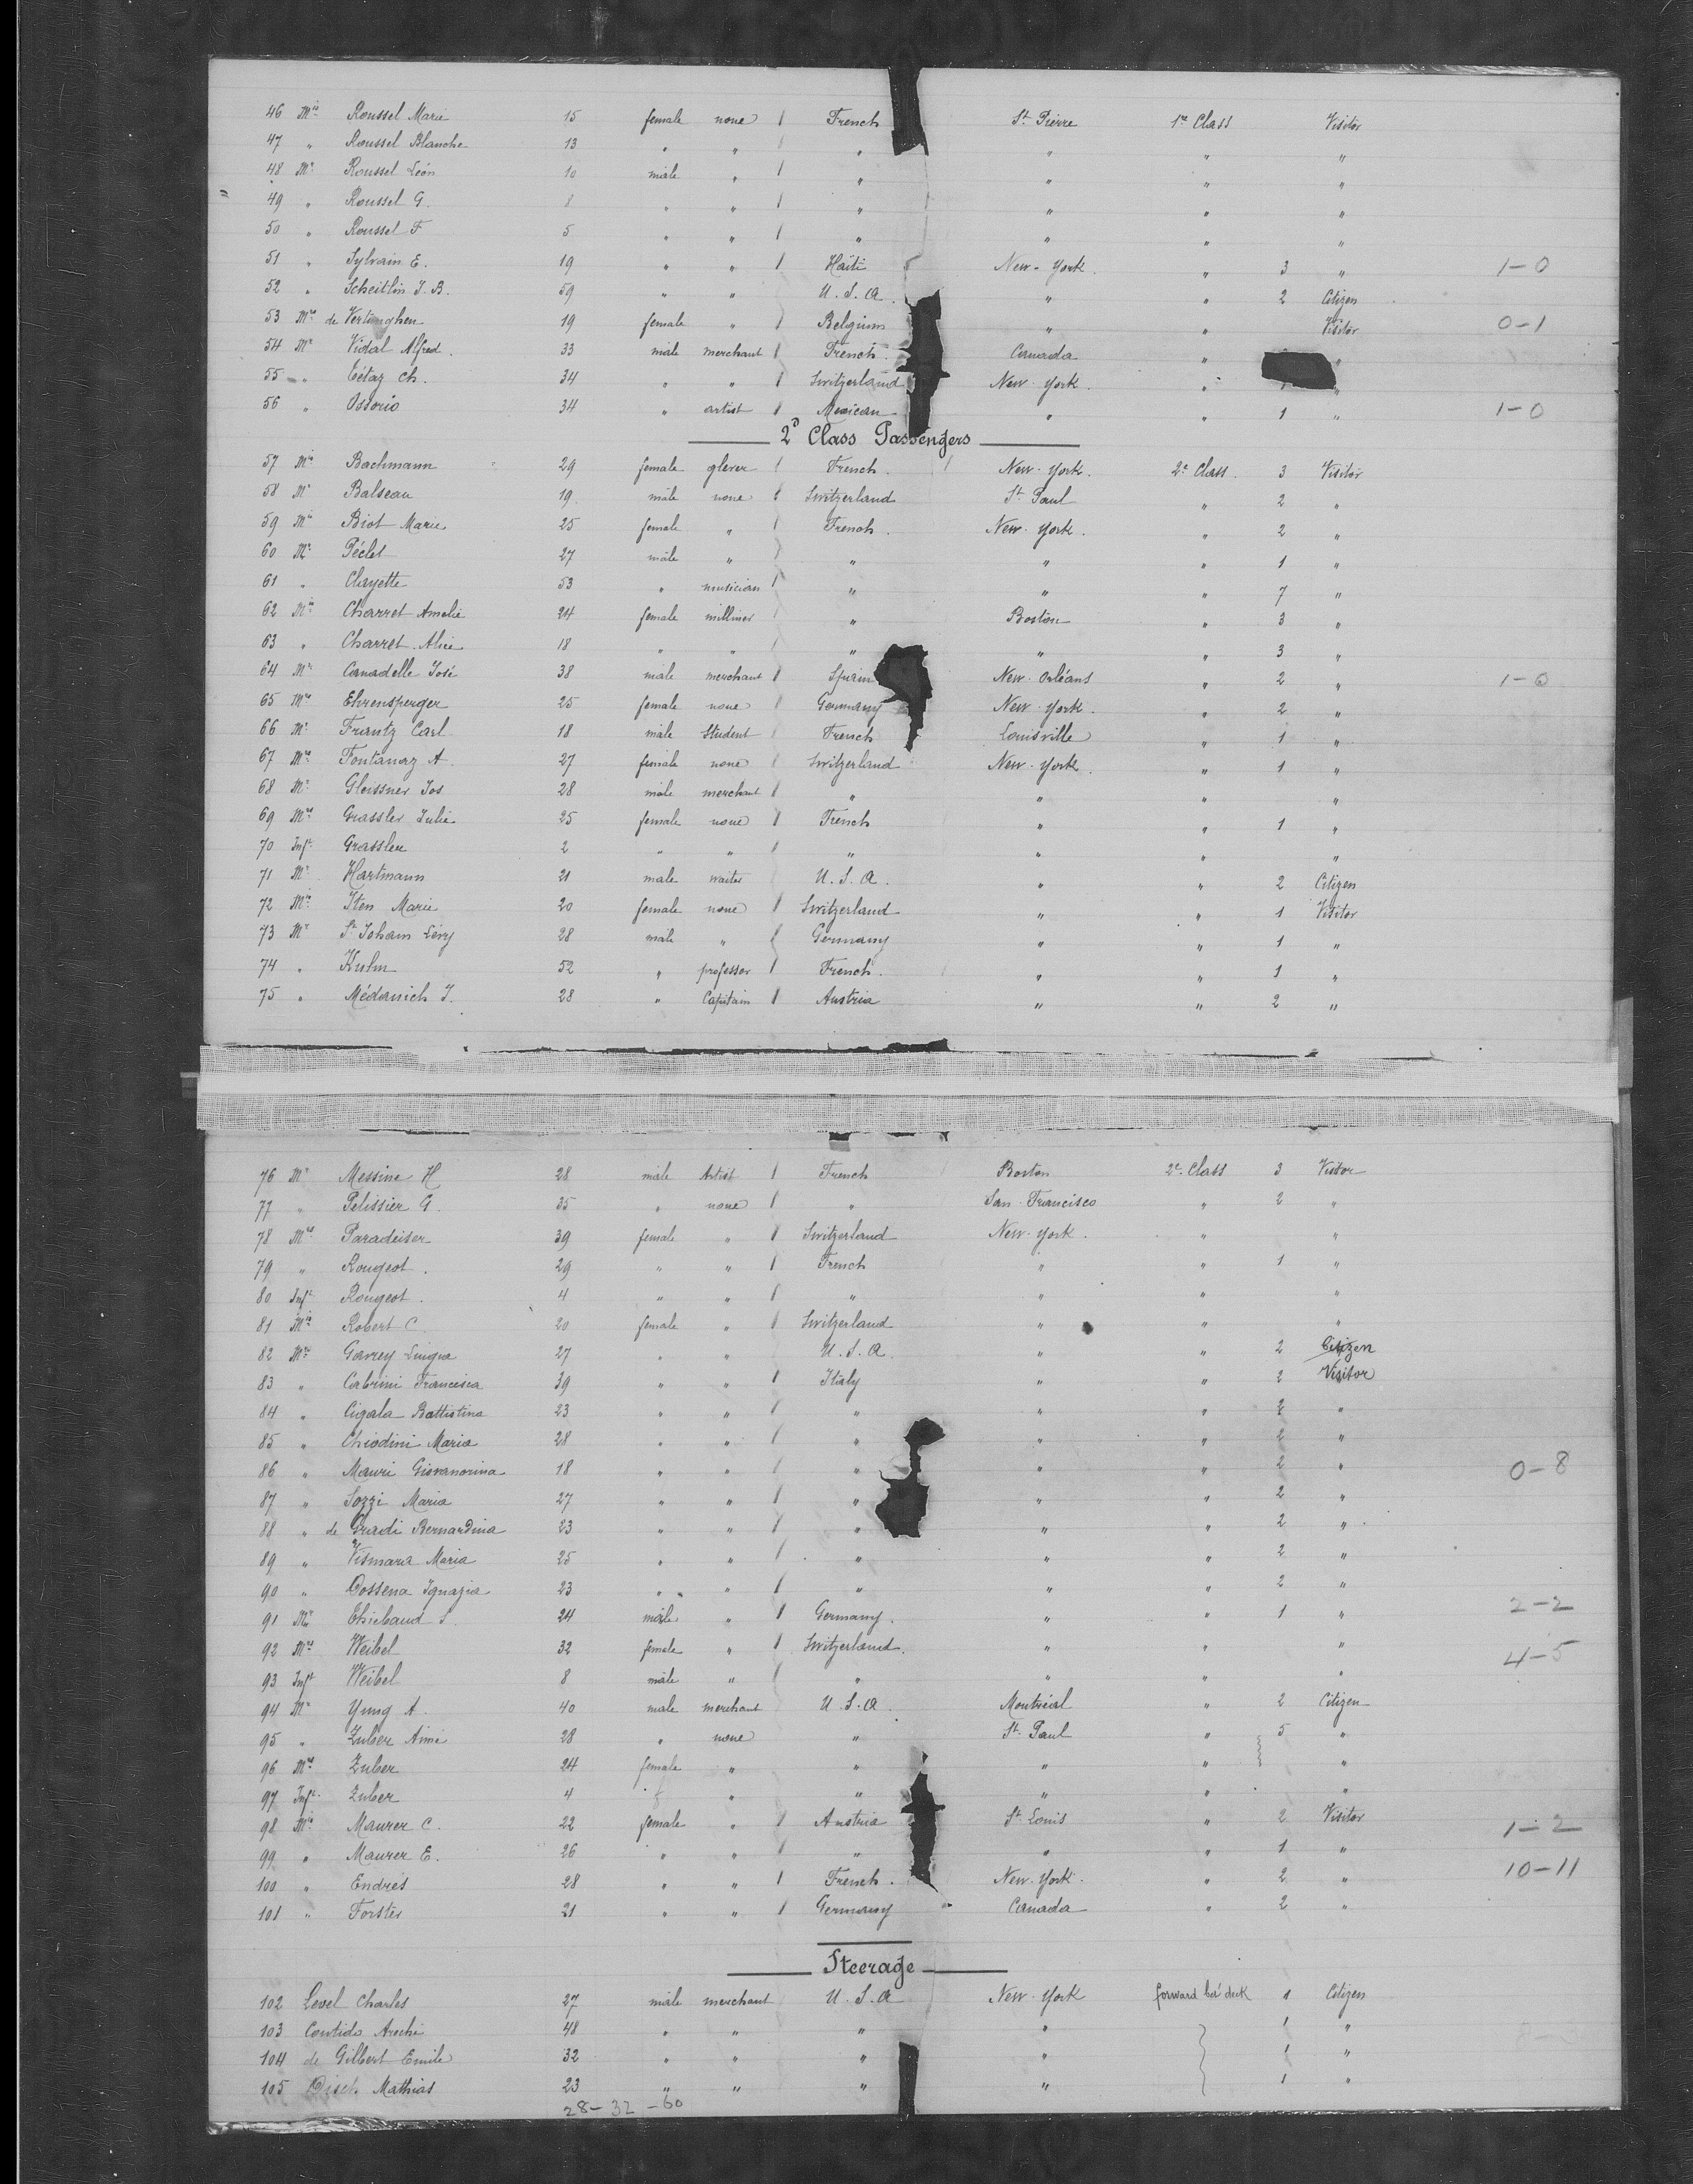 46 Mlle Roussel Marie 15 female none French St Pierre 1re Class Visitor
47 " Roussel Blanche 13 " " " " " "
48 Mr Roussel Léon 10 male " " " " "
49 " Roussel G. 8 " " " " " "
50 " Roussel F 5 " " " " " "
51 " Sylvain E. 19 " " Haïti New-York. " 3 " 1-0
52 " Scheitlin J.B. 59 " " U.S.A. " " 2 Citizen
53 Mme de Vertinghen 19 female " Belgium " " Visitor 0-1
54 Mr Vidal Alfred. 33 male merchant French. Canada " "
55 " Tétaz Ch. 34 " " Switzerland New-York. " 1 "
56 " Ossorio 34 " artist Mexican " " 1 " 1-0
2d Class Passengers
57 Mlle Bachmann 29 female glover French. New-York. 2e Class. 3 Visitor
58 Mr Balseau 19 male none Switzerland St Paul " 2 "
59 Mlle Biot Marie 25 female " French. New-York. " 2 "
60 Mr Péclet 27 male " " " " 1 "
61 " Clayette 53 " musician " " " 7 "
62 Mlle Charret Amelie 24 female milliner " Boston " 3 "
63 " Charret Alice 18 " " " " " 3 "
64 Mr Canadelle José 38 male merchant Spain New-Orléans " 2 " 1-0
65 Mme Ehrensperger 25 female none Germany New-York. " 2 "
66 Mr Frantz Carl 18 male Student French Louisville " 1 "
67 Mme Fontanaz A. 27 female none Switzerland New-York. " 1 "
68 Mr Gleissner Jos 28 male merchant " " " "
69 Mme Grassler Julie 25 female none French " " 1 "
70 Inft Grassler 2 " " " " " "
71 Mr Hartmann 21 male waiter U.S.A. " " 2 Citizen
72 Mlle Iten Marie 20 female none Switzerland " " 1 Visitor
73 Mr St Joham Levy 28 male " Germany " " 1 "
74 " Kuhn 52 " professor French. " " 1 "
75 " Médanich J. 28 " Capitain Austria " " 2 "
76 Mr Messine H 28 male Artist French Boston 2e Class 3 Visitor
77 " Pelissier G. 35 " none " San-Francisco " 2 "
78 Mme Paradeiser 39 female " Switzerland New-York. " "
79 " Rougeot. 29 " " French " " 1 "
80 Inft Rougeot. 4 " " " " " "
81 Mlle Robert C. 20 female " Switzerland " " "
82 Mme Garrey Luigia 27 " " U.S.A. " " 2 Citizen
83 " Cabrini Francisca 39 " " Italy " " 2 Visitor
84 " Cigala Battistina 23 " " " " " 2 "
85 " Chiodini Maria 28 " " " " " 2 "
86 " Mauri Giovannina 18 " " " " " 2 " 0-8
87 " Sozzi Maria 27 " " " " " 2 "
88 " de Gradi Bernardina 23 " " " " " 2 "
89 " Vismara Maria 25 " " " " " 2 "
90 " Dossena Ignazia 23 " " " " " 2 "
91 Mr Thiebaud S. 24 male " Germany. " " 1 " 2-2
92 Mme Weibel 32 female " Switzerland. " " " 4-5
93 Inft Weibel 8 male " " " " "
94 Mr Yung A. 40 male merchant U.S.A. Montréal " 2 Citizen
95 " Zuber Aimé 28 " none " St Paul " 5 "
96 Mme Zuber 24 female " " " " "
97 Inft Zuber 4 " " " " "
98 Mlle Maurer C. 22 female " Austria St Louis " 2 Visitor 1-2
99 " Maurer E. 26 " " " " " 1 "
100 " Endrés 28 " " French. New-York. " 2 " 10-11
101 " Forster 21 " " Germany Canada " 2 "
Steerage
102 Level Charles 27 male merchant U.S.A New-York forward bet deck 1 Citizen
103 Contido 48 " " " " 1 "
104 de Gilbert Emile 32 " " " " 1 "
105 Disch Mathias 23 " " " " 1 "
28-32-60